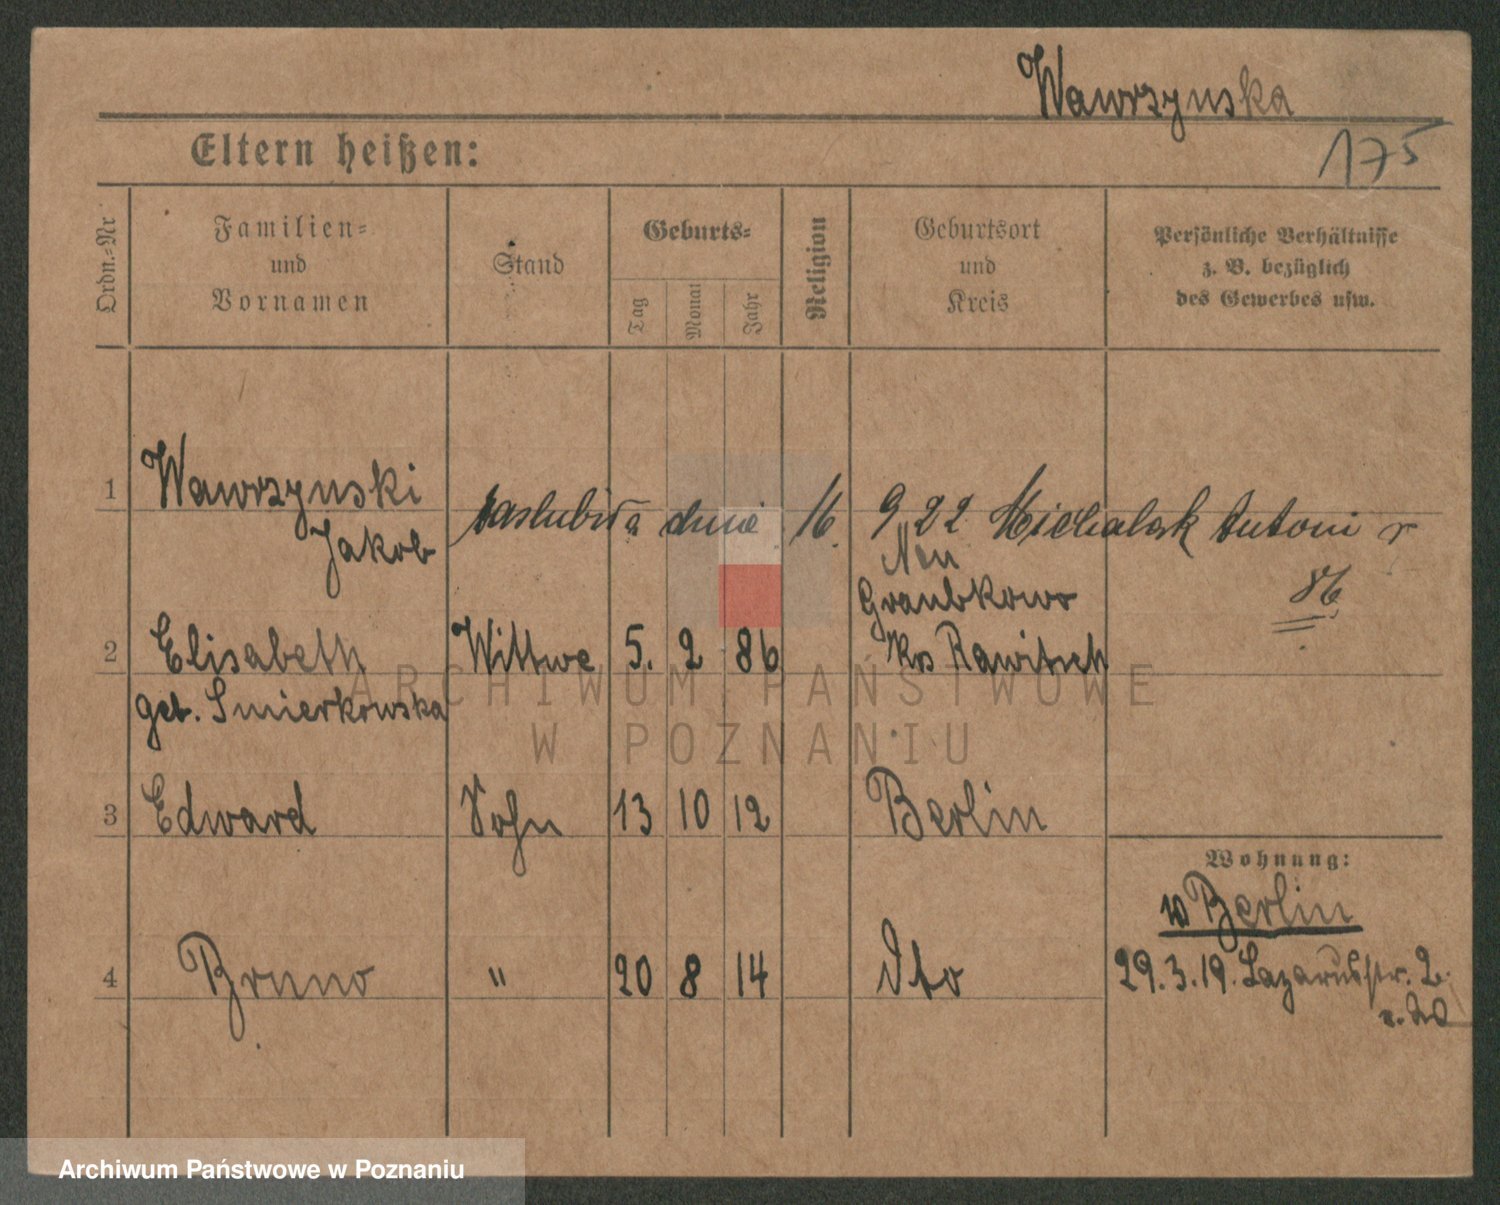 Wawrzynska
175
Eltern heißen:
Ordn.-Nr
Familien-
und
Vornamen
Stand
Geburts-
Tag
Monat
Jahr
Religion
Geburtsort
und
Kreis
Persönliche Verhältnisse
z. B. bezüglich
des Gewerbes usw.
1 Wawrzynski
Jakob
zaslubiła dnia 16. 9 22 Michalak Antoni r
86
Neu
Graubkowo
2 Elisabeth Wittwe 5. 2 86 Krs Rawitsch
geb. Smierkowska
3 Edward Sohn 13 10 12 Berlin
Wohnung:
w Berlin
4 Bruno " 20 8 14 Dto 29.3.19. Lazarusstr. 2.
ARCHIWUM PAŃSTWOWE
W POZNANIU
Archiwum Państwowe w Poznaniu